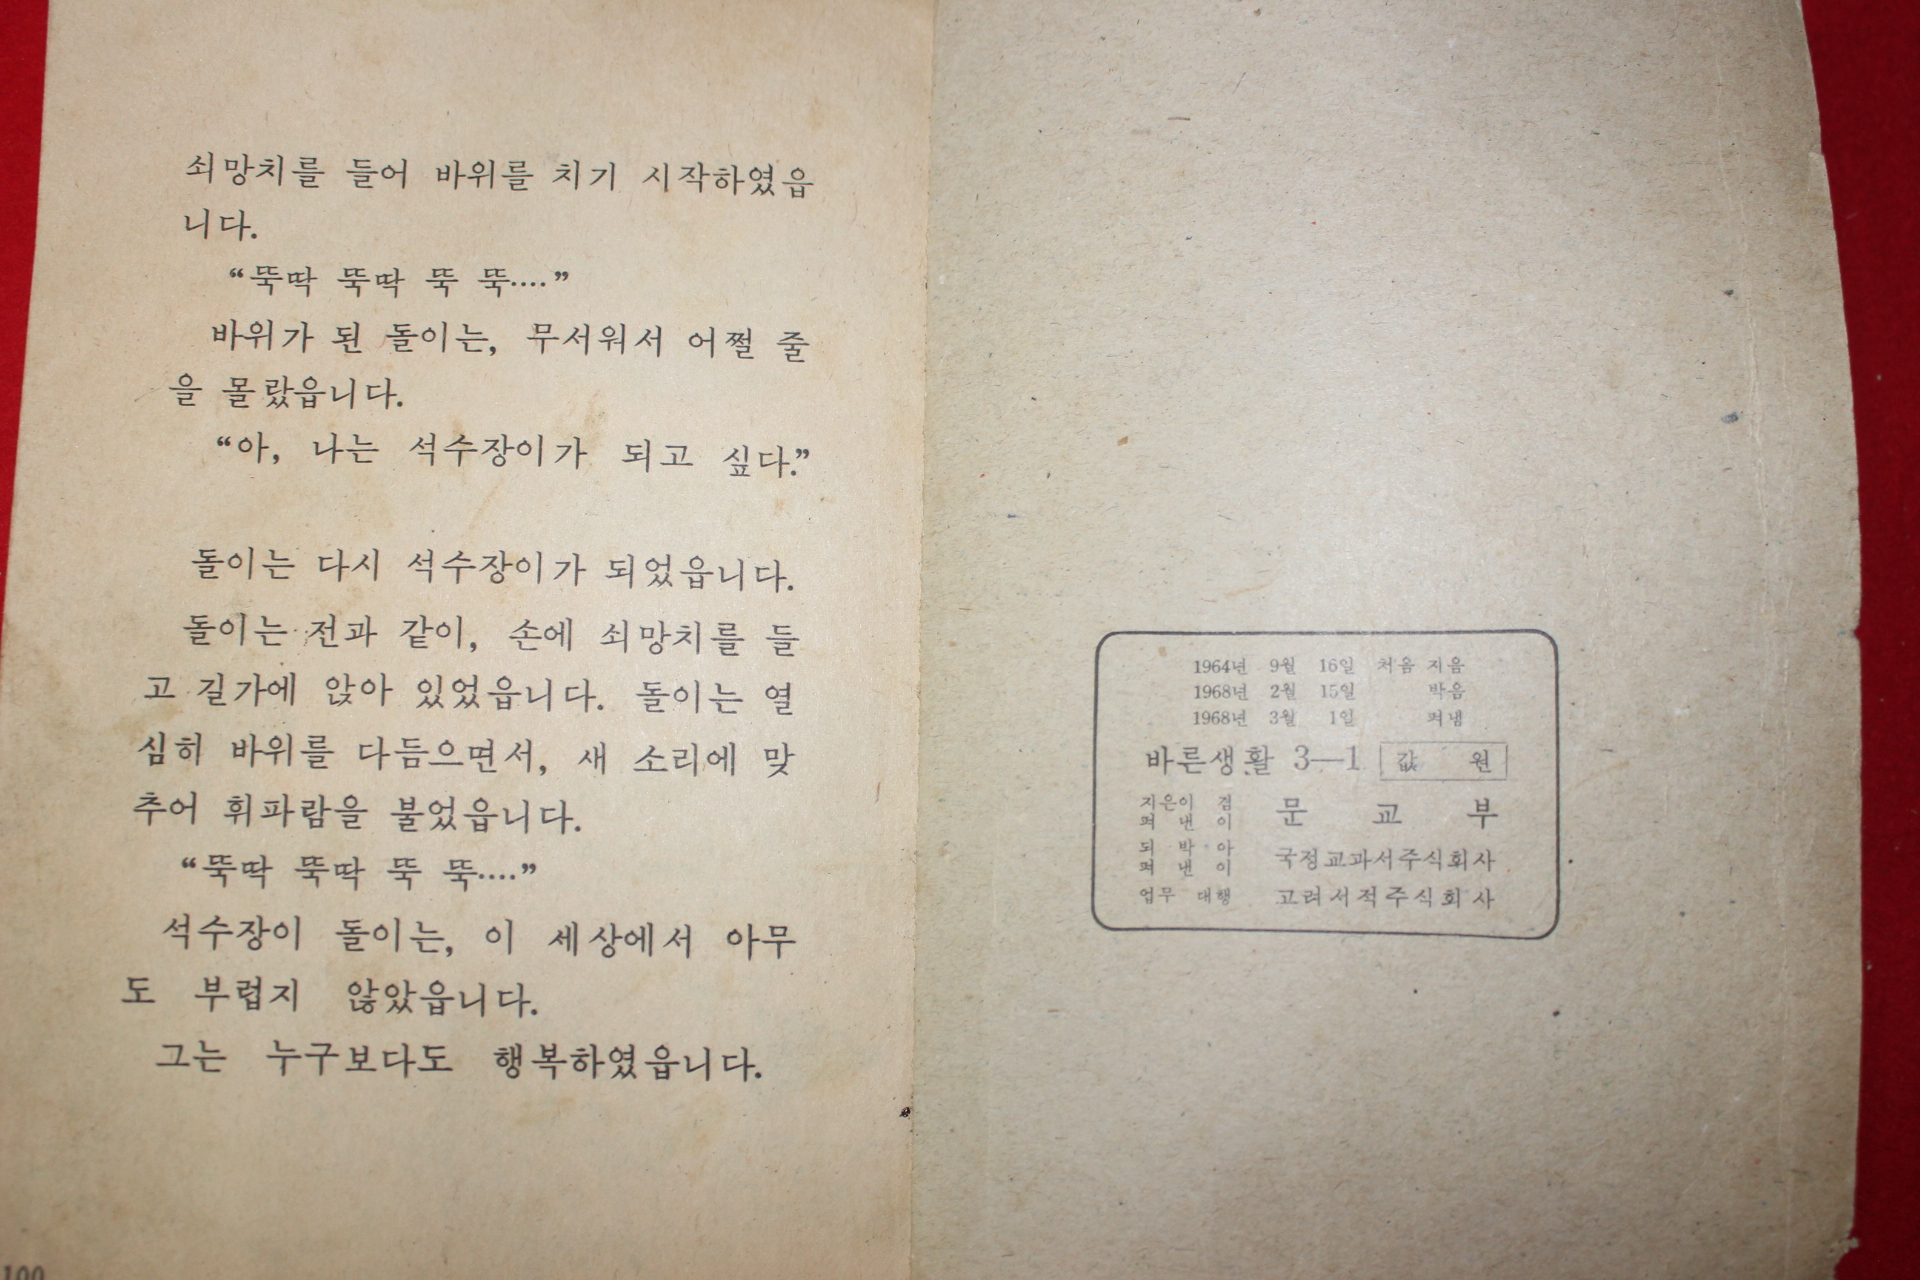 쇠망치를 들어 바위를 치기 시작하였읍
니다.
“뚝딱 뚝딱 뚝 뚝····”
바위가 된 돌이는, 무서워서 어쩔 줄
을 몰랐읍니다.
“아, 나는 석수장이가 되고 싶다.”
돌이는 다시 석수장이가 되었읍니다.
돌이는 전과 같이, 손에 쇠망치를 들
고 길가에 앉아 있었읍니다. 돌이는 열
심히 바위를 다듬으면서, 새 소리에 맞
추어 휘파람을 불었읍니다.
“뚝딱 뚝딱 뚝 뚝····”
석수장이 돌이는, 이 세상에서 아무
도 부럽지 않았읍니다.
그는 누구보다도 행복하였읍니다.
100
1964년 9월 16일 처음 지음
1968년 2월 15일 박음
1968년 3월 1일 펴냄
바른생활 3—1 값 원
지은이 겸
펴 낸 이
문 교 부
되 박 아
펴 낸 이
국정교과서주식회사
업무 대행 고려서적주식회사